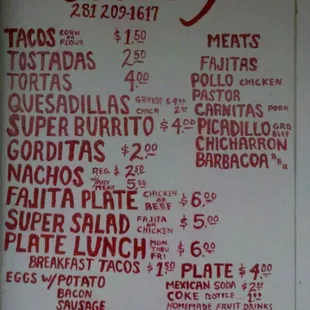 281 209-1617
TACOS CORN OR FLOUR $1.50
TOSTADAS 2.50
TORTAS 4.00
QUESADILLAS GRANDE $4.00
CHICA
SUPER BURRITO $4.00
GORDITAS $2.00
NACHOS REG. $2.50
W/ MEAT 5.00
FAJITA PLATE CHICKEN OR BEEF $6.00
SUPER SALAD FAJITA OR CHICKEN $5.00
PLATE LUNCH MON THRU FRI $6.00
BREAKFAST TACOS $1.50
EGGS W/POTATO
BACON
SAUSAGE
MEATS
FAJITAS
POLLO CHICKEN
PASTOR
CARNITAS PORK
PICADILLO GRD BEEF
CHICHARRON
BARBACOA BBQ
PLATE $4.00
MEXICAN SODA $2.00
COKE BOTTLE 1.00
HOMEMADE FRUIT DRINKS